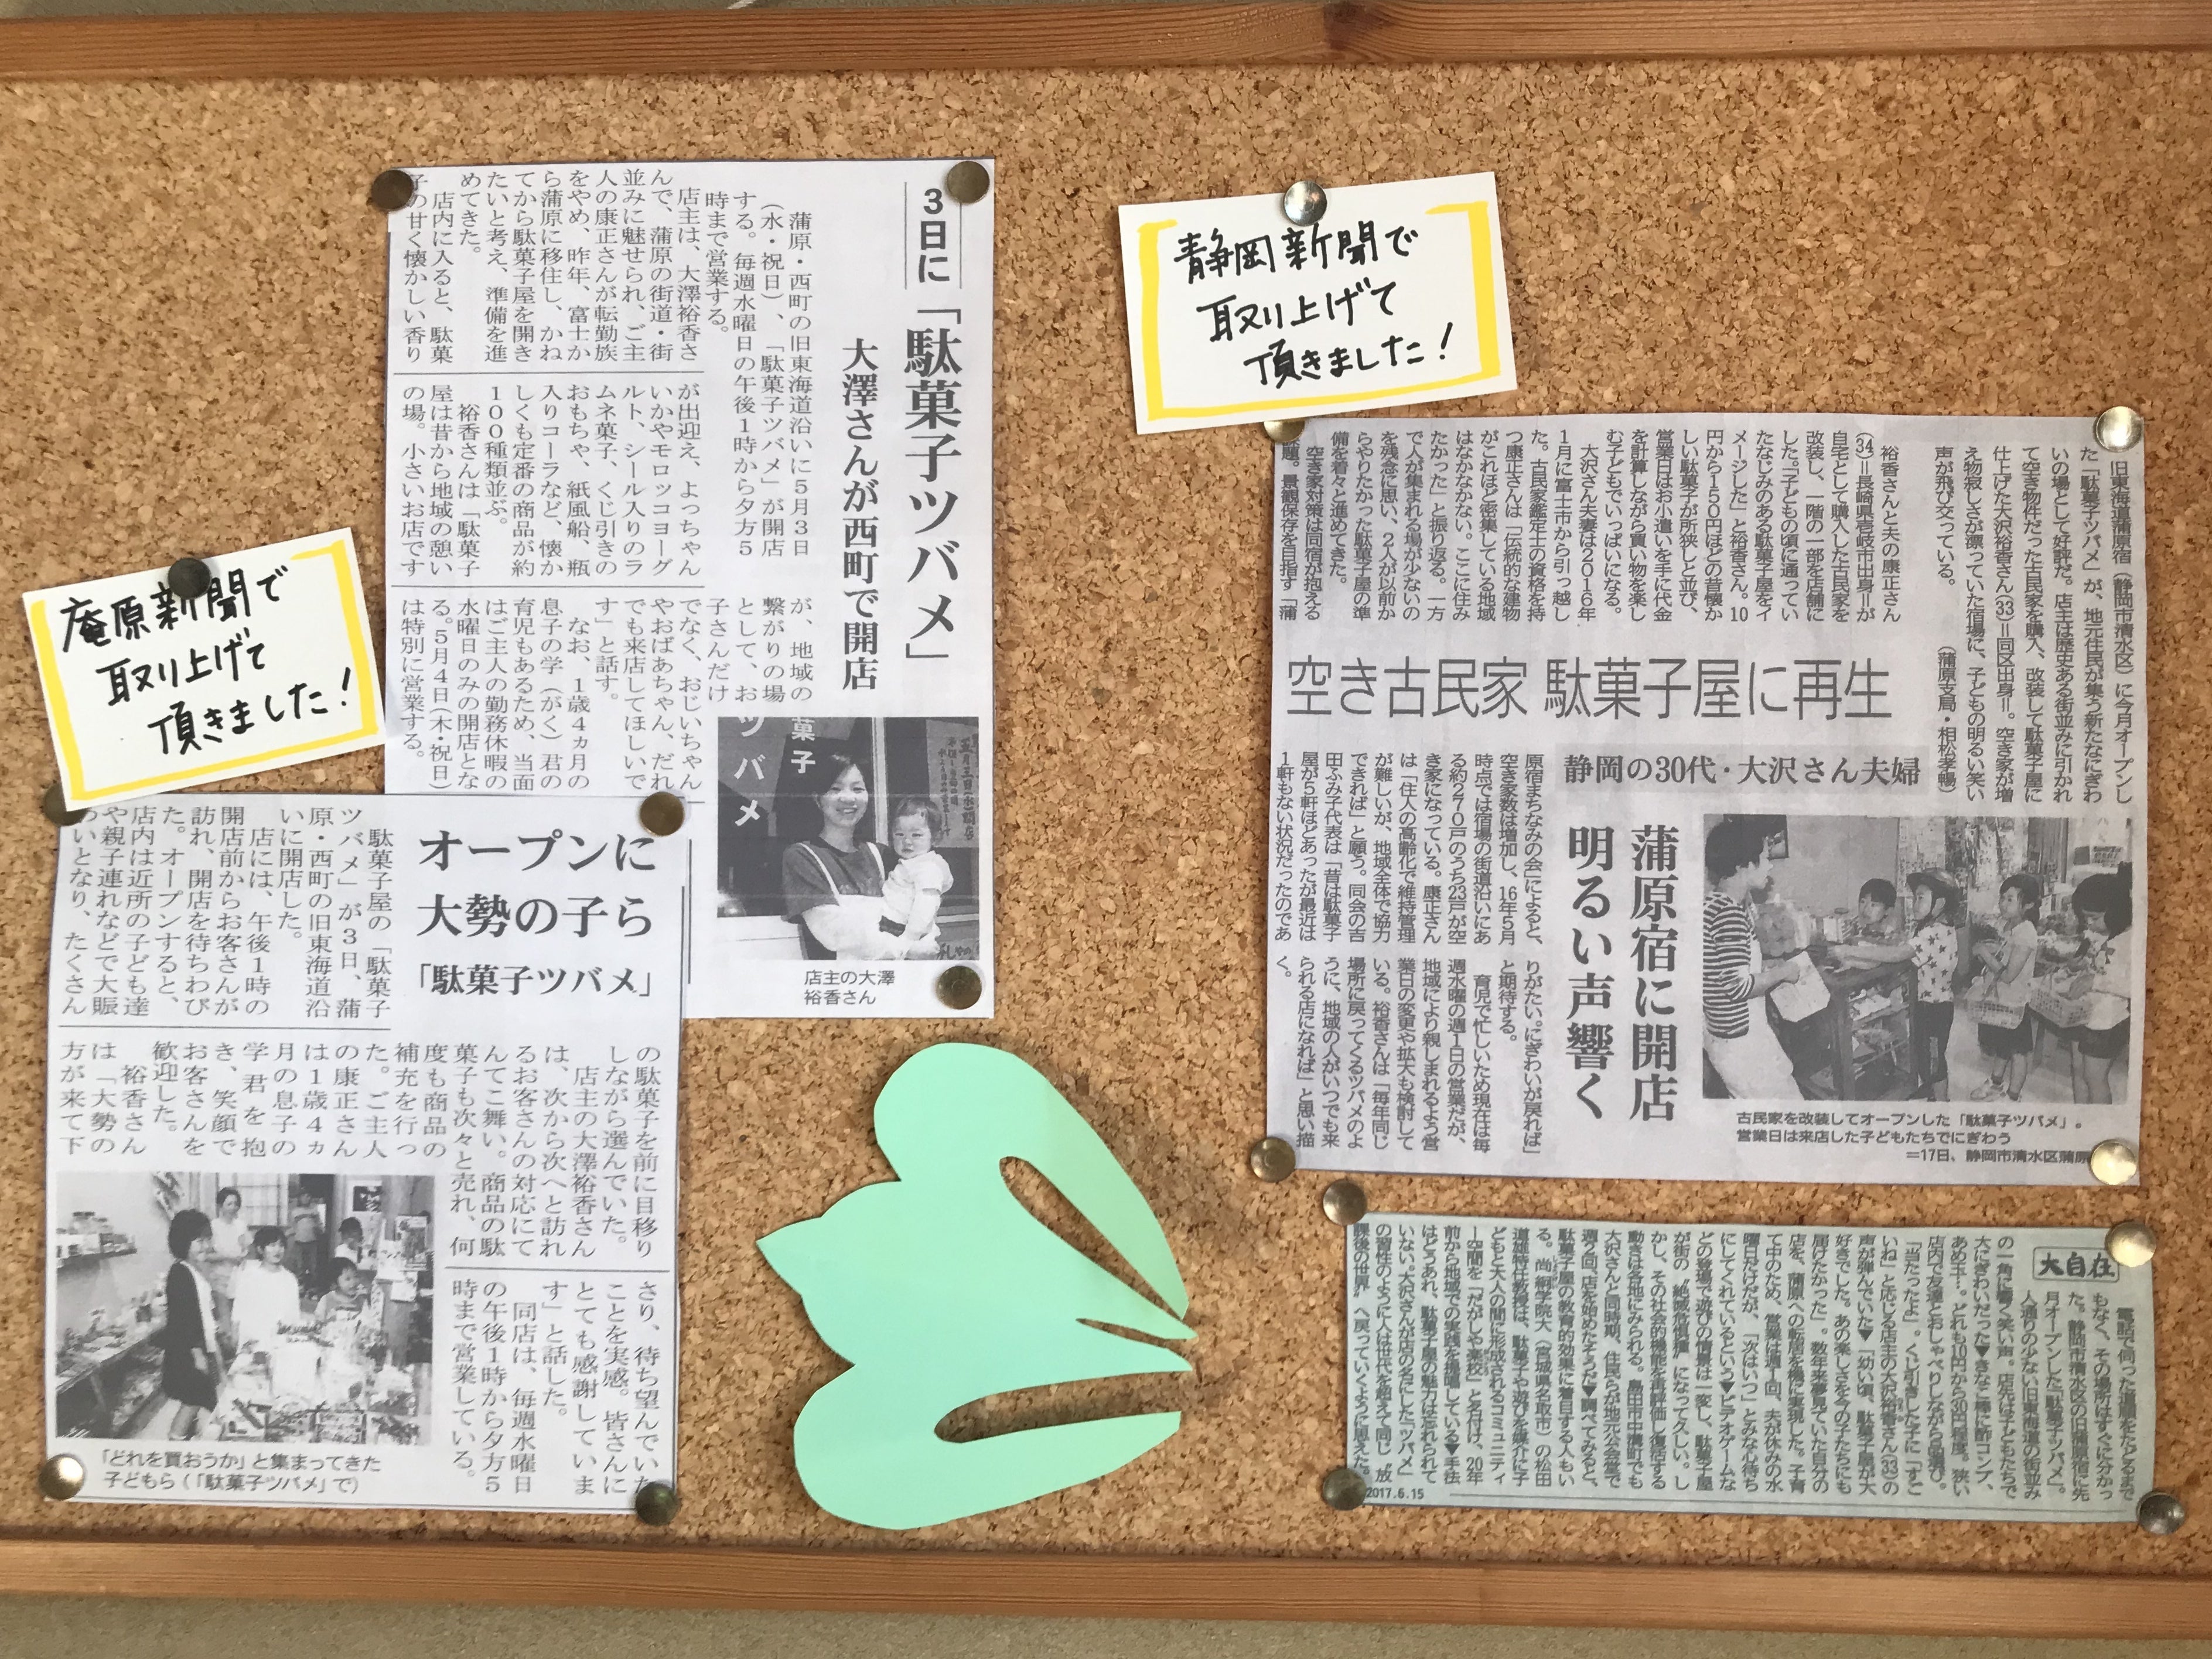 庵原新聞で
取り上げて
頂きました！
3日に「駄菓子ツバメ」
大澤さんが西町で開店
蒲原・西町の旧東海道沿いに５月３日
（水・祝日）、「駄菓子ツバメ」が開店
する。毎週水曜日の午後１時から夕方５
時まで営業する。
店主は、大澤裕香さ
んで、蒲原の街道・街
並みに魅せられ、ご主
人の康正さんが転勤族
をやめ、昨年、富士か
ら蒲原に移住し、かね
てから駄菓子屋を開き
たいと考え、準備を進
めてきた。
店内に入ると、駄菓
子の甘く懐かしい香り
が出迎え、よっちゃん
いかやモロッコヨーグ
ルト、シール入りのラ
ムネ菓子、くじ引きの
おもちゃ、紙風船、瓶
入りコーラなど、懐か
しくも定番の商品が約
１００種類並ぶ。
裕香さんは「駄菓子
屋は昔から地域の憩い
の場。小さいお店です
が、地域の
繋がりの場
として、お
子さんだけ
でなく、おじいちゃん
やおばあちゃん、だれ
でも来店してほしいで
す」と話す。
なお、１歳４ヵ月の
息子の学（がく）君の
育児もあるため、当面
はご主人の勤務休暇の
水曜日のみの開店とな
る。５月４日（木・祝日）
は特別に営業する。
菓子
ツバメ
店主の大澤
裕香さん
オープンに
大勢の子ら
「駄菓子ツバメ」
駄菓子屋の「駄菓子
ツバメ」が３日、蒲
原・西町の旧東海道沿
いに開店した。
店には、午後１時の
開店前からお客さんが
訪れ、開店を待ちわび
た。オープンすると、
店内は近所の子ども達
や親子連れなどで大賑
わいとなり、たくさん
の駄菓子を前に目移り
しながら選んでいた。
店主の大澤裕香さん
は、次から次へと訪れ
るお客さんの対応にて
んてこ舞い。商品の駄
菓子も次々と売れ、何
度も商品の
補充を行っ
た。ご主人
の康正さん
は１歳４ヵ
月の息子の
学君を抱
き、笑顔で
お客さんを
歓迎した。
裕香さん
は「大勢の
方が来て下
さり、待ち望んでいた
ことを実感。皆さんに
とても感謝していま
す」と話した。
同店は、毎週水曜日
の午後１時から夕方５
時まで営業している。
「どれを買おうか」と集まってきた
子どもら（「駄菓子ツバメ」で）
静岡新聞で
取り上げて
頂きました！
空き古民家 駄菓子屋に再生
静岡の30代・大沢さん夫婦
蒲原宿に開店
明るい声響く
旧東海道蒲原宿（静岡市清水区）に今月オープンし
た「駄菓子ツバメ」が、地元住民が集う新たなにぎわ
いの場として好評だ。店主は歴史ある街並みに引かれ
て空き物件だった古民家を購入、改装して駄菓子屋に
仕上げた大沢裕香さん（33）＝同区出身＝。空き家が増
え物寂しさが漂っていた宿場に、子どもの明るい笑い
声が飛び交っている。
（蒲原支局・相松孝暢）
裕香さんと夫の康正さん
（34）＝長崎県壱岐市出身＝が
自宅として購入した古民家を
改装し、一階の一部を店舗に
した。「子どもの頃に通ってい
たなじみのある駄菓子屋をイ
メージした」と裕香さん。10
円から150円ほどの昔懐か
しい駄菓子が所狭しと並び、
営業日はお小遣いを手に代金
を計算しながら買い物を楽し
む子どもでいっぱいになる。
大沢さん夫妻は2016年
1月に富士市から引っ越し
た。古民家鑑定士の資格を持
つ康正さんは「伝統的な建物
がこれほど密集している地域
はなかなかない。ここに住み
たかった」と振り返る。一方
で人が集まれる場が少ないの
を残念に思い、2人が以前か
らやりたかった駄菓子屋の準
備を着々と進めてきた。
空き家対策は同宿が抱える
課題。景観保存を目指す「蒲
原宿まちなみの会」によると、
空き家数は増加し、16年5月
時点では宿場の街道沿いにあ
る約270戸のうち23戸が空
き家になっている。康正さん
は「住人の高齢化で維持管理
が難しいが、地域全体で協力
できれば」と願う。同会の吉
田ふみ子代表は「昔は駄菓子
屋が5軒ほどあったが最近は
1軒もない状況だったのであ
りがたい。にぎわいが戻れば」
と期待する。
育児で忙しいため現在は毎
週水曜の週1日の営業だが、
地域により親しまれるよう営
業日の変更や拡大も検討して
いる。裕香さんは「毎年同じ
場所に戻ってくるツバメのよ
うに、地域の人がいつでも来
られる店になれば」と思い描
く。
古民家を改装してオープンした「駄菓子ツバメ」。
営業日は来店した子どもたちでにぎわう
＝17日、静岡市清水区蒲原
大自在
電話で伺った道順をたどるまで
もなく、その場所はすぐに分かっ
た。静岡市清水区の旧蒲原宿に先
月オープンした「駄菓子ツバメ」。
人通りの少ない旧東海道の街並み
の一角に響く笑い声。店先は子どもたちで
大にぎわいだった▼きなこ棒に酢コンブ、
あめ玉…。どれも10円から30円程度。狭い
店内で友達とおしゃべりしながら品選び。
「当たったよ」。くじ引きした子に「すご
いね」と応じる店主の大沢裕香さん（33）の
声が弾んでいた▼「幼い頃、駄菓子屋が大
好きでした。あの楽しさを今の子たちにも
届けたかった」。数年来夢見ていた自分の
店を、蒲原への転居を機に実現した。子育
て中のため、営業は週1回、夫が休みの水
曜日だけだが、「次はいつ」とみな心待ち
にしてくれているという▼ビデオゲームな
どの登場で遊びの情景は一変し、駄菓子屋
が街の〝絶滅危惧種〟になって久しい。し
かし、その社会的機能を再評価し復活する
動きは各地にみられる。島田市中溝町でも
大沢さんと同時期、住民らが地元公会堂で
週2回、店を始めたそうだ▼調べてみると、
駄菓子屋の教育的効果に着目する人もい
る。尚絅学院大（宮城県名取市）の松田
道雄特任教授は、駄菓子や遊びを媒介に子
どもと大人の間に形成されるコミュニティ
ー空間を「だがしや楽校」と名付け、20年
前から地域での実践を提唱している▼手法
はどうあれ、駄菓子屋の魅力は忘れられて
いない。大沢さんが店の名にした「ツバメ」
の習性のように人は世代を超えて同じ〝放
課後の世界〟へ戻っていくように思えた。
2017.6.15